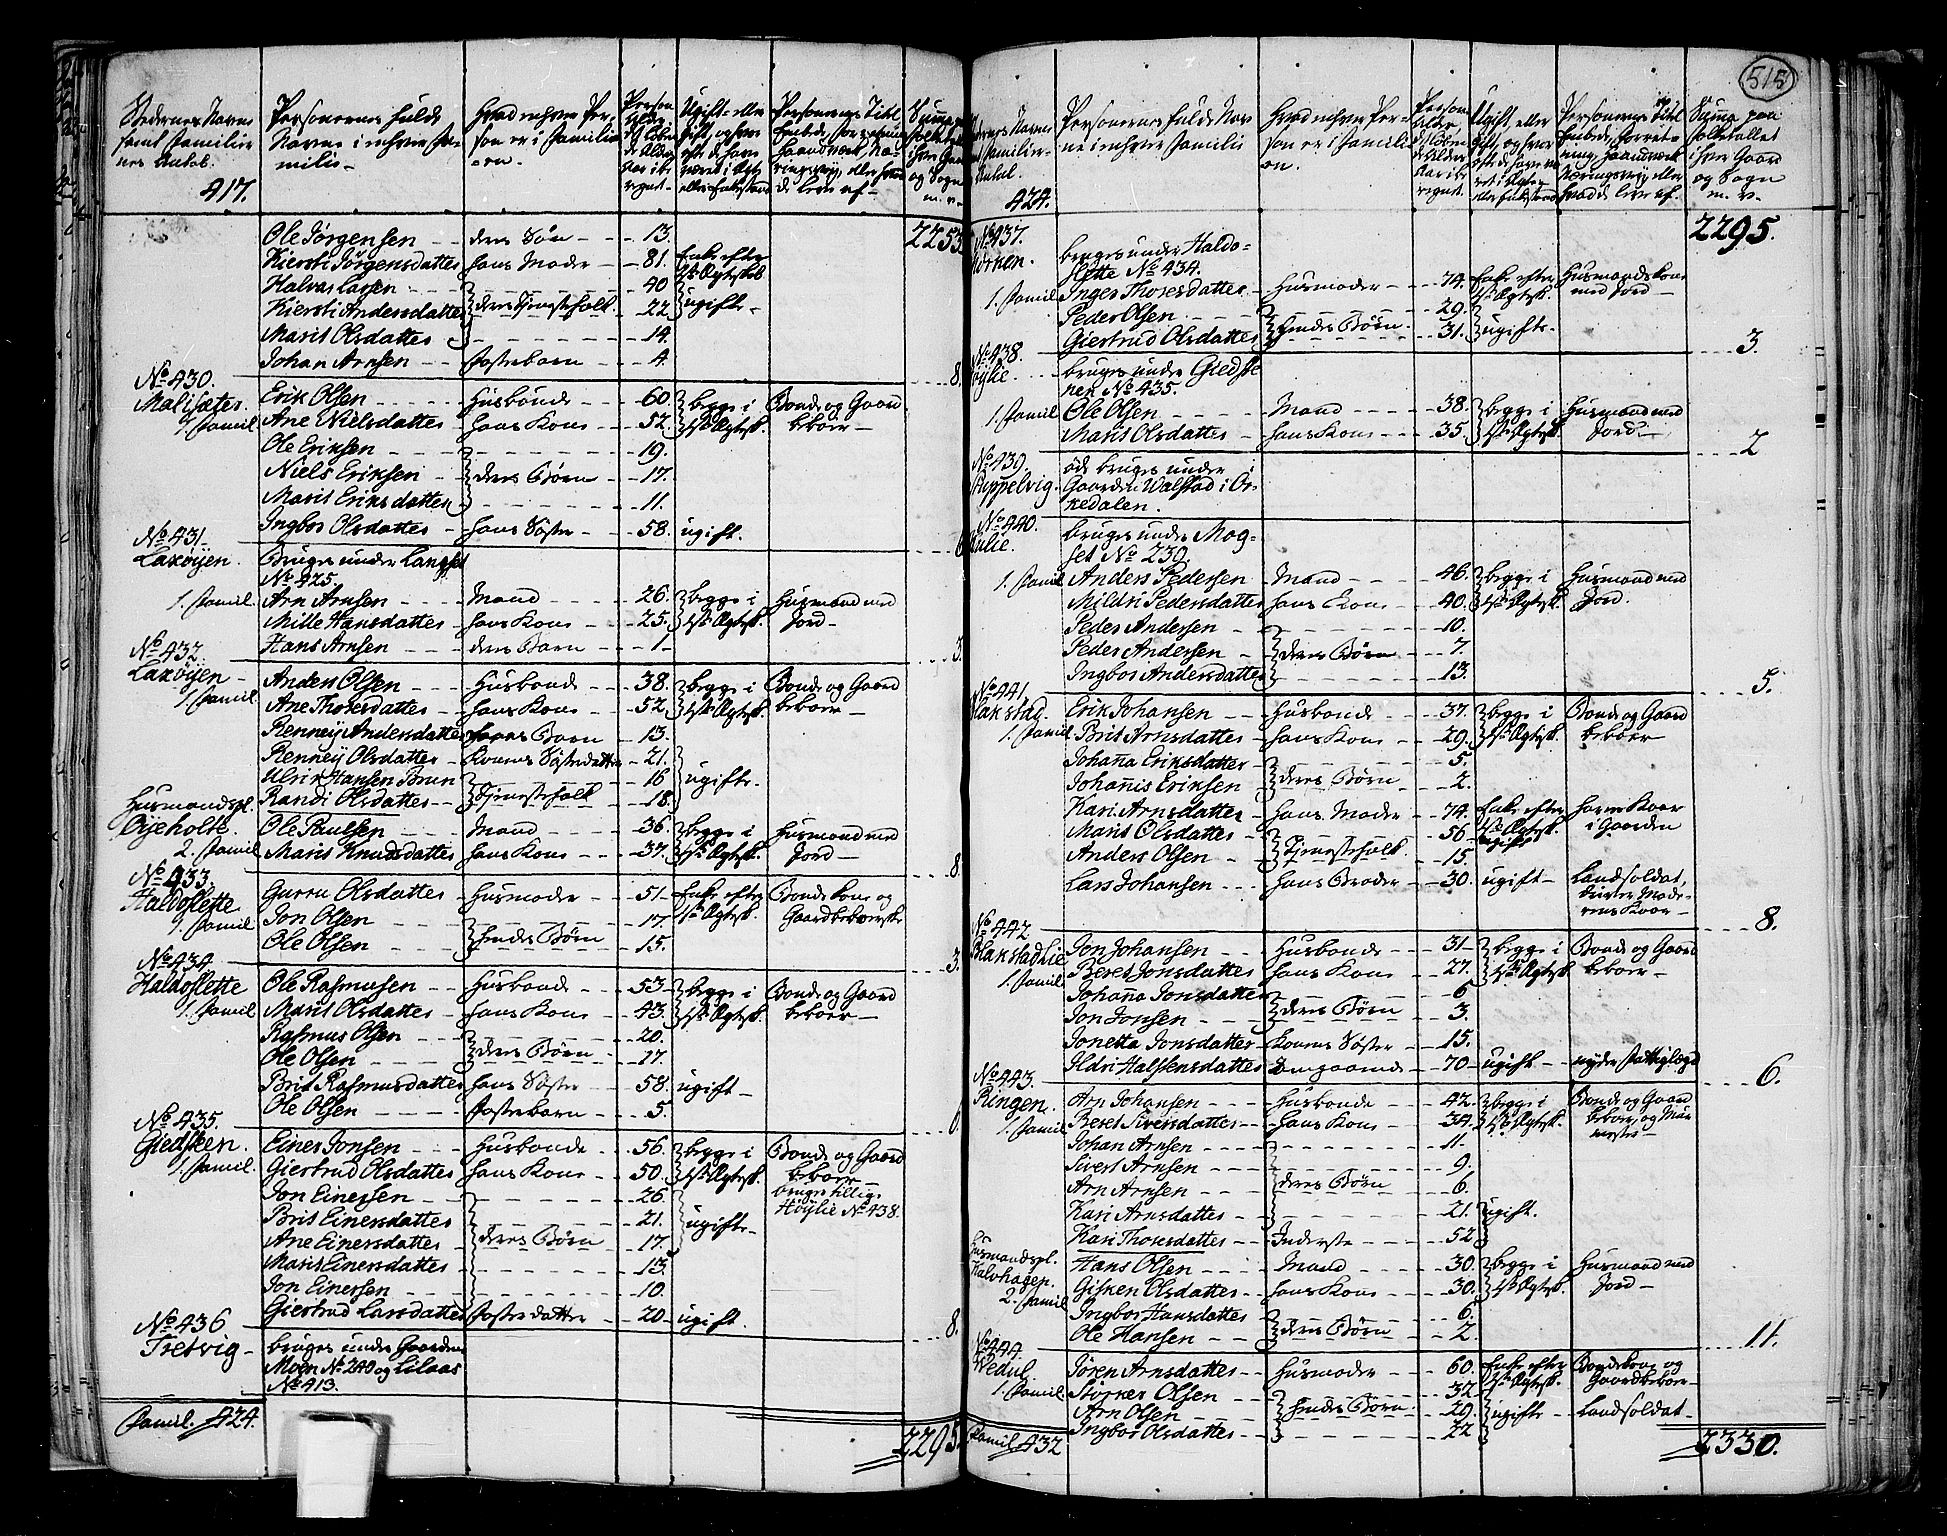 Stedernes Navne samt Familiernes Antal. 417.
Personernes fulde Navne i enhver Familie.
Hvad enhver Person er i Familien.
Summa paa Folketallet i hver Gaard og Sogn m. v.
2253
Ole Jørgensen - - deres Søn - - 13.
Kiersti Jørgensdatter hans Moder - 81. Enke efter 1ste Ægteskab
Halvor Larsen - - 40
Kiersti Andersdatter deres Tjenestefolk - 22 ugifte -
Marit Olsdatter - - 14.
Johan Arnsen - - Fosterbarn - - 4.
8.
No 430.
Malisæter. 1. Famil.
Erik Olsen - - - Husbonde - - 60 begge i Bonde og Gaard
Ane Nielsdatter hans Kone - - 52. 1ste Ægtesk. beboer -
Ole Eriksen - - - 19.
Niels Eriksen deres Børn - - 17.
Marit Eriksdatter - - 11.
Ingbor Olsdatter - hans Søster - - 58. ugift.
6
No 431.
Laxøyen. 1. Famil.
Bruges under Langset
No 425.
Arn Arnsen - - Mand - - - 26. begge i Husmand med
Mille Hansdatter hans Kone - - 25. 1ste Ægtesk. Jord -
Hans Arnsen - deres Barn - - 1.
3.
No 432.
Laxøyen - 1. Famil.
Anders Olsen - - Husbonde - - 38. begge i Bonde og Gaard
Ane Thoresdatter - hans Kone - - 52. 1ste Ægtesk. beboer -
Renney Andersdatter Barn - - 13.
Renney Olsdatter - Konens Søsterdatter - 21.
Ulrik Hansen Brun - 16 ugifte -
Randi Olsdatter - - Tjenestefolk - 18.
Husmandspl.
Øijeholte. 2. Famil.
Ole Paulsen - Mand - - - 36. begge i Husmand med
Marit Knudsdatter hans Kone - - 37. 1ste Ægtesk. Jord -
8.
No 433
Haldoslette 1. Famil
Gurru Olsdatter - Husmoder - - 51 - Enke efter Bonde Kone og
Jon Olsen - - - 17. 1ste Ægtesk. Gaardbeboerske
Ole Olsen - - hendes Børn - - 15.
3.
No 434
Haldoslette 1. Famil
Ole Rasmusen - Husbonde - - 53 - begge i Bonde og Gaard
Marit Olsdatter - hans Kone - - 43. 1ste Ægtesk. beboer -
Rasmus Olsen - - 20.
Ole Olsen - - - deres Børn - - 17.
Brit Rasmusdatter hans Søster - - 58. ugift -
Ole Olsen - - - Fosterbarn - - 5.
6
No 435.
Giedsteen. 1. Famil.
Einer Jonsen - - Husbonde - - 56. begge i Bonde og Gaard
Giertrud Olsdatter hans Kone - - 50. 1ste Ægtesk. beboer -
Jon Einersen - - 26. bruger tillige
Brit Einersdatter - - 21. ugifte - Høylie No 438.
Ane Einersdatter - deres Børn - - 17.
Marit Einersdatter - - 13.
Jon Einersen - - 10.
Giertrud Larsdatter Fosterdatter - - 20 - ugift.
8.
No 436
Tretvig -
bruges under Gaarden
Moen No 240 og Lilaas
No 413.
Famil. 424. 2295.
515
424.
Personernes fulde Navne i enhver Familie
Hvad enhver Person er i Familien.
Summa paa Folketallet i hver Gaard og Sogn m. v.
2295.
No 437.
1. Famil
bruges under Haldo-
slette No 434.
Inger Thoresdatter - Husmoder - - 74. Enke efter Husmandskone
Peder Olsen - - - 29. 1ste Ægtesk. med Jord -
Giertrud Olsdatter hendes Børn - - 31. ugifte -
3.
No 438.
Høylie. 1. Famil
bruges under Giedste
nen No 435.
Ole Olsen - - - Mand - - - 38. begge i Husmand med
Marit Olsdatter - hans Kone - - 35. 1ste Ægtesk. Jord -
2
No 439.
øde bruges under
Gaarden Walstad i Or-
kedalen.
No 440.
1. Famil
bruges under Mog-
set No 230.
Anders Pedersen - Mand - - - 46. begge i Husmand med
Mildri Pedersdatter hans Kone - - 40. 1ste Ægtesk. Jord.
Peder Andersen - - 10.
Peder Andersen - deres Børn - - 7.
Ingbor Andersdatter - 13.
5.
No 441.
Blakstad. 1. Famil
Erik Johansen - - Husbonde - - 37. begge i Bonde og Gaard
Brit Arnsdatter - hans Kone - - 29. 1ste Ægtesk. beboer -
Johanna Eriksdatter - 5.
Johannis Eriksen deres Børn - - 2.
Kari Arnsdatter hans Moder - - 74. Enke efter haver Kaar
Marit Olsdatter - - 56 1ste Ægtesk. i Gaarden
ugift
Anders Olsen - - Tjenestefolk - - 15.
Lars Johansen - - hans Broder - - 30. ugift - Landsoldat,
dyrker Mode-
rens Kaar -
8.
No 442
Blakstadlie 1. Famil
Jon Johansen - Husbonde - - 31 - begge i Bonde og Gaard
Beret Jonsdatter hans Kone - - 27. 1ste Ægtesk. beboer -
Johanna Jonsdatter - 6
Jon Jonsen - - deres Børn - - 3.
Jonetta Jonsdatter Konens Søster - - 15.
Ildri Halsensdatter Omgaaende - 70 - ugift -
6.
No 443.
Ringen. 1. Famil
Arn Johansen - - Husbonde - - 42. begge i Bonde og Gaard
Beret Siversdatter - hans Kone - - 34. 1ste Ægtesk. beboer, og Mur
Johan Arnsen - - 11. mester -
Sivert Arnsen - - 9.
Arn Arnsen - - deres Børn - - 6.
Kari Arnsdatter - - 21. ugift.
Kari Thoresdatter - Inderste - - 52
Husmandspl.
Kalvhagen. 2. Famil
Hans Olsen - - Mand - - - 30. begge i Husmand med
Gisken Olsdatter - hans Kone - - 30. 1ste Ægtesk. Jord -
Ingbor Hansdatter - - 6.
Ole Hansen - - deres Børn - - 2.
11.
No 444
Wedul. 1. Famil
Jøren Arnsdatter - Husmoder - - 60. Enke efter Bondekone og
Størker Olsen - - 32. 1ste Ægtesk. Gaardbeboer -
Arn Olsen - - hendes Børn - - 29. ugifte - Landsoldat -
Ingbor Olsdatter - - 22
Famil 432 2330.